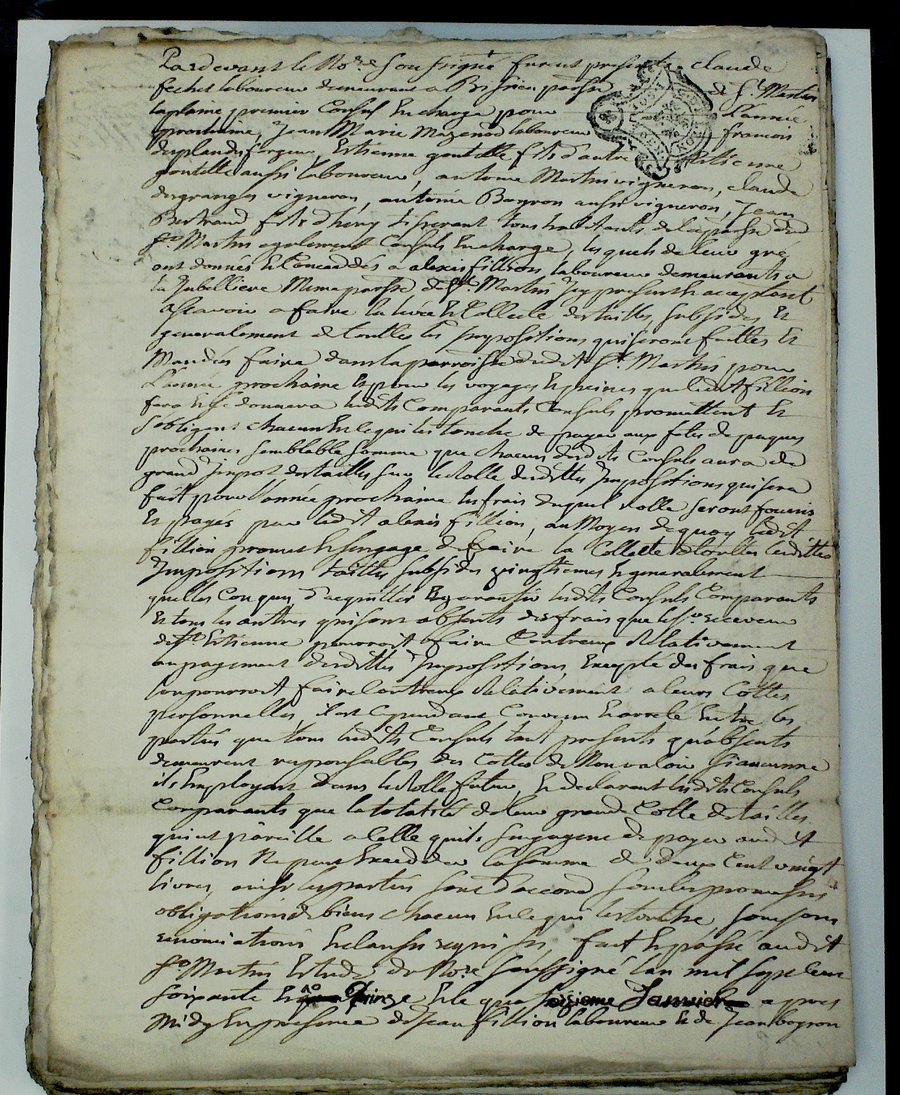 Pardevant le No.re Soussigné furent presents claude
fechet laboureur demeurant a parsse de St Martin
laplaine premier Consul Encharge pour L'année
prochaine, Jean Marie laboureur francois
Estienne goutelle fils d'autre Estienne
goutelle aussi laboureur, antoine Martin vigneron, claude
desgranges vigneron, antoine Boyron aussi vigneron, Jean
Bertrand fils d'heny tisserant tous habitants de la parsse dud
St Martin egalement Consuls Encharge, lesquels de leur gré
ont donnés Et Concedés a alexis fillion laboureur demeurant a
la Jubelliere Meme parsse de St Martin Icy present Et acceptant
ascavoir a faire la levée Et Collecte des tailles subsides Et
generalement de touttes les Impositions qui seront faittes Et
Mandées faire dans la parroisse dud St Martin pour
L'année prochaine Et pour les voyages Et peines que ledit fillion
fera Et se donnera lesdits Comparants Consuls promettent Et
s'obligent chacun En ce qui les touche de payer aux fetes de paques
prochaines semblable somme que chacun desdits Consuls aura de
grand Impost des tailles sur le Rolle desdittes Impositions qui sera
fait pour L'année prochaine les frais duquel rolle seront fournis
Et payés par ledit alexis fillion, au Moyen de quoy ledit
fillion promet Et s'engage de faire la Collecte de touttes lesdittes
Impositions tailles subsides vingtiemes Et generalement
quelles Conques d'acquitter Et garantir lesdits Consuls Comparants
Et tous les autres qui sont absents des frais que le Sr receveur
de St Estienne pourroit faire Contreux Relativement
au payement desdittes Impositions, Excepté des frais que
l'on pourroit faire Contreux Relativement a leurs Cottes
personnelles, il est Cependant Convenu Et arreté Entre les
parties que tous lesdits Consuls tant presents qu'absents
demeurent responsables des Cottes de Non valoir si aucunne
il s'Employent dans le Rolle futur, Et declarent lesdits Consuls
Comparants que la totalité de leur grand Cotte de tailles
qui est pareille a Celle qu'ils s'engagent de payer audit
fillion Ne peut Exceder la somme de deux Cent vingt
livres, ainsi les parties sont d'accord sous les promesses
obligations de biens chacun En ce qui les touche, soumissions
renonciations Et clauses requises, fait Et passé audit
St Martin Estude du No.re soussigné l'an mil sept cent
soixante Et quinze Et le Janvier apres
Midy En presence de Jean fillion laboureur Et de Jean boyron